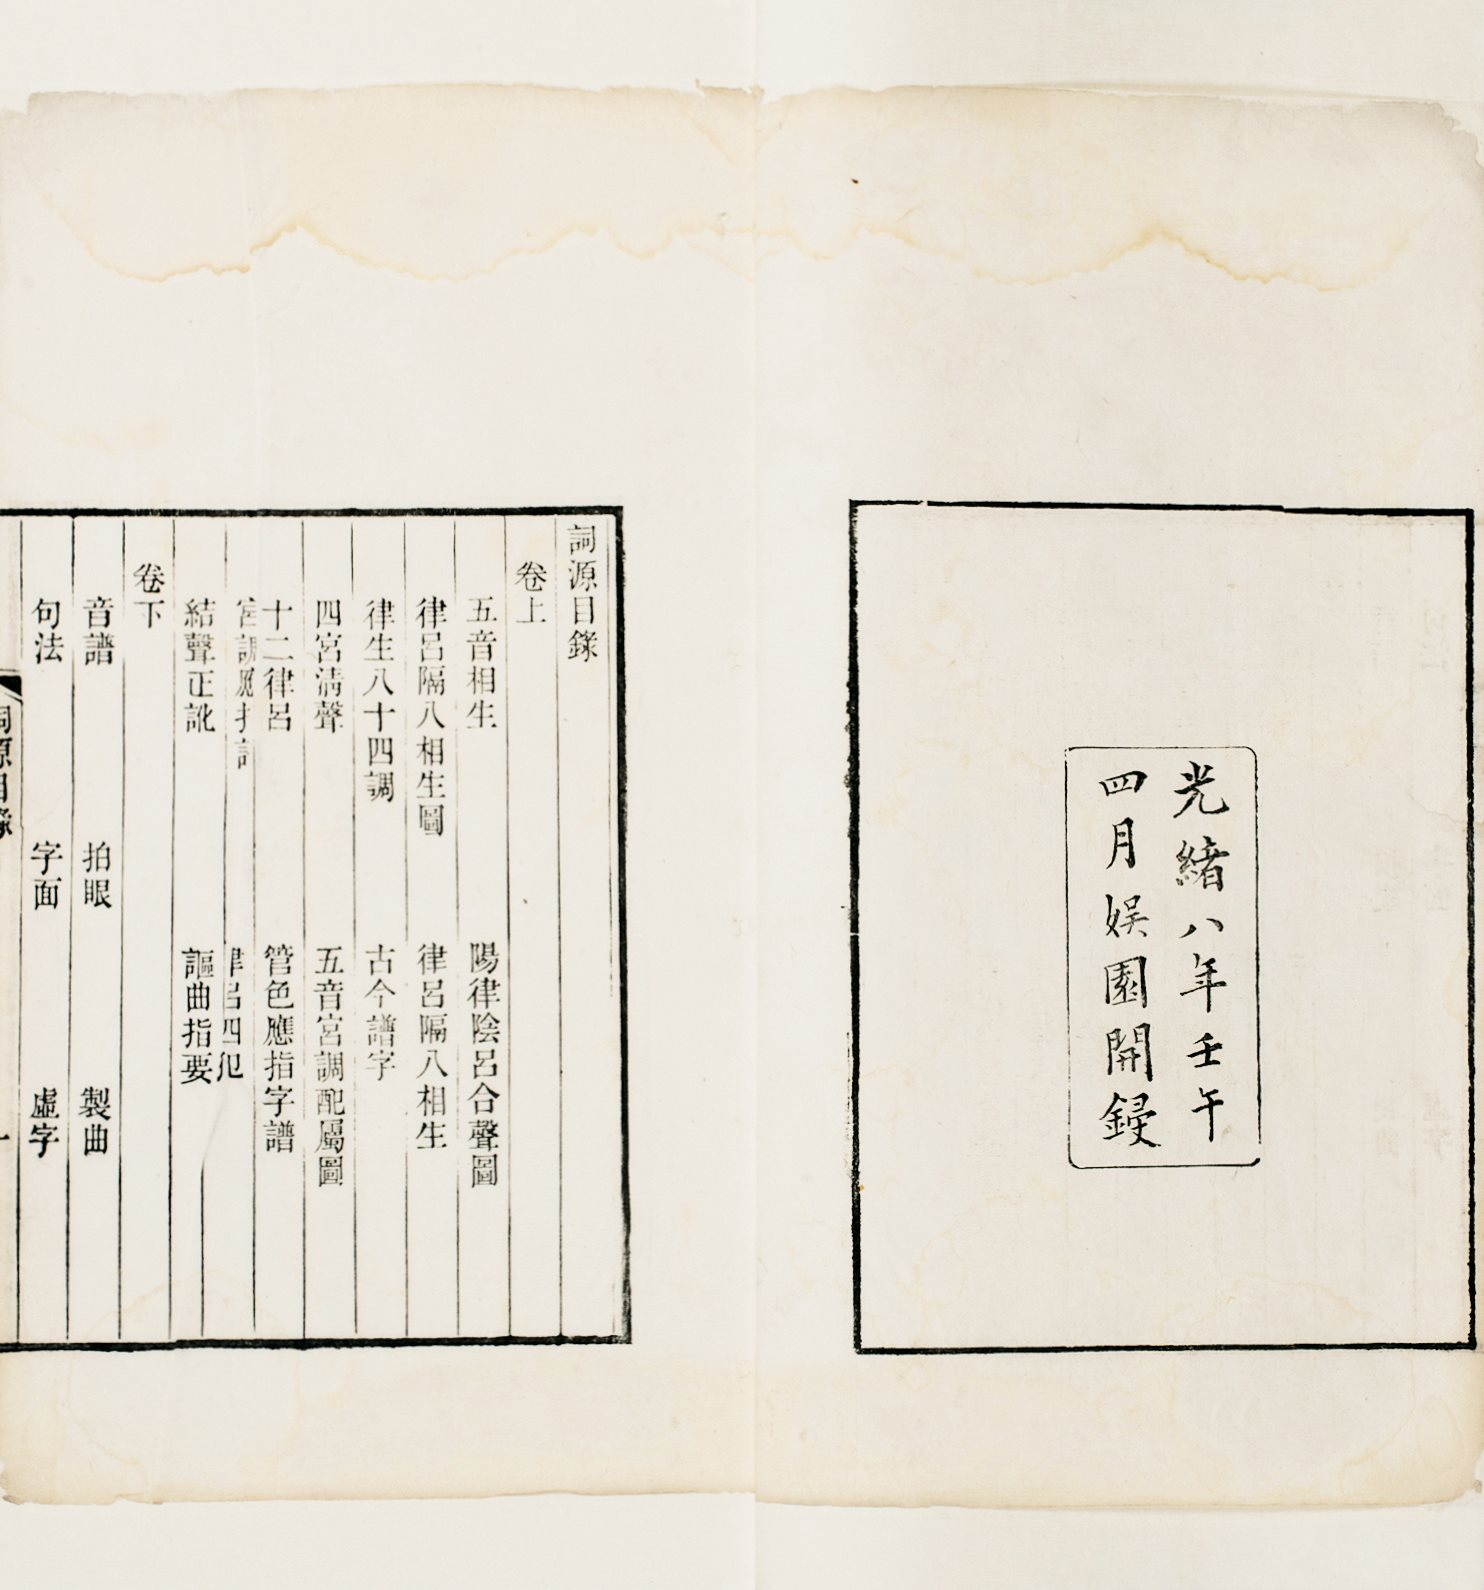 光緒八年壬午
四月娛園開鋟
詞源目錄
卷上
五音相生　陽律陰呂合聲圖
律呂隔八相生圖　律呂隔八相生
律生八十四調　古今譜字
四宮清聲　五音宮調配屬圖
十二律呂　管色應指字譜
宮調應指譜　律呂四犯
結聲正訛　謳曲指要
卷下
音譜　拍眼　製曲
句法　字面　虛字
詞源目錄
一